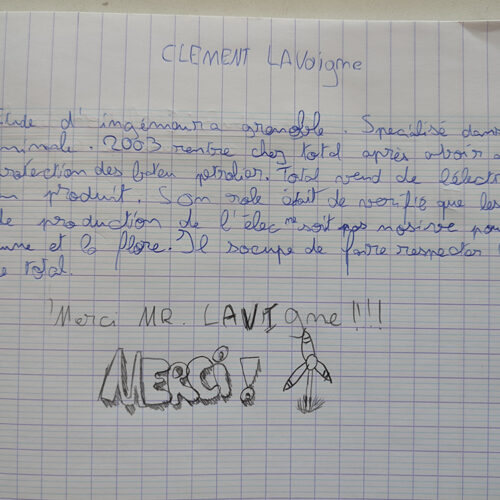 CLEMENT LAVoigne
Etude d'ingénieur a grenoble. Spécialisé dans
minale. 2003 rentre chez total après avoir
protection des bateu petrolier. Total vend de l'électr
un produit. Son role était de verifié que les
de production de l'élec ne soit pas nosive pou
une et la flore. Il socupe de faire respecter
e total.
Merci MR. LAVIgne !!!!
MERCi !